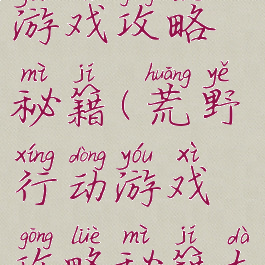 游戏攻略
mì jí huāng yě
秘籍(荒野
xíng dòng yóu xì
行动游戏
gōng lüè mì jí dà